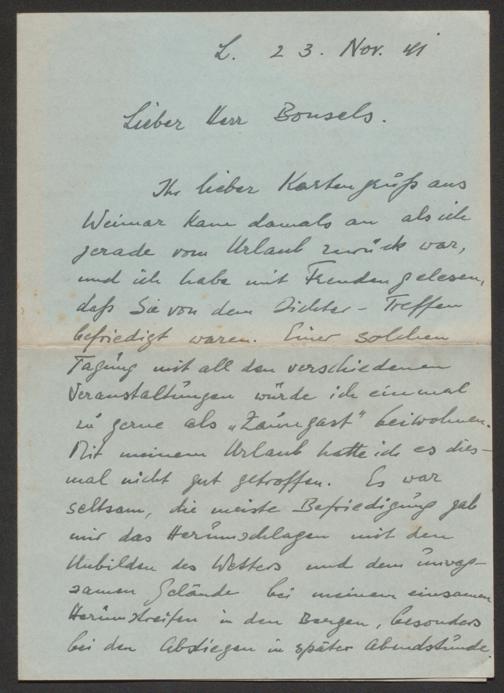 L. 23. Nov. 41
Lieber Herr Bonsels.
Ihr lieber Kartengruß aus
Weimar kam damals an als ich
gerade vom Urlaub zurück war,
und ich habe mit Freuden gelesen,
daß Sie von dem Dichter-Treffen
befriedigt waren. Einer solchen
Tagung mit all den verschiedenen
Veranstaltungen würde ich einmal
zu gerne als „Zaungast" beiwohnen.
Mit meinem Urlaub hatte ich es dies-
mal nicht gut getroffen. Es war
seltsam, die meiste Befriedigung gab
mir das Herumschlagen mit den
Unbilden des Wetters und dem unweg-
samen Gelände bei meinem einsamen
Herumstreifen in den Bergen, besonders
bei den Abstiegen in später Abendstunde.